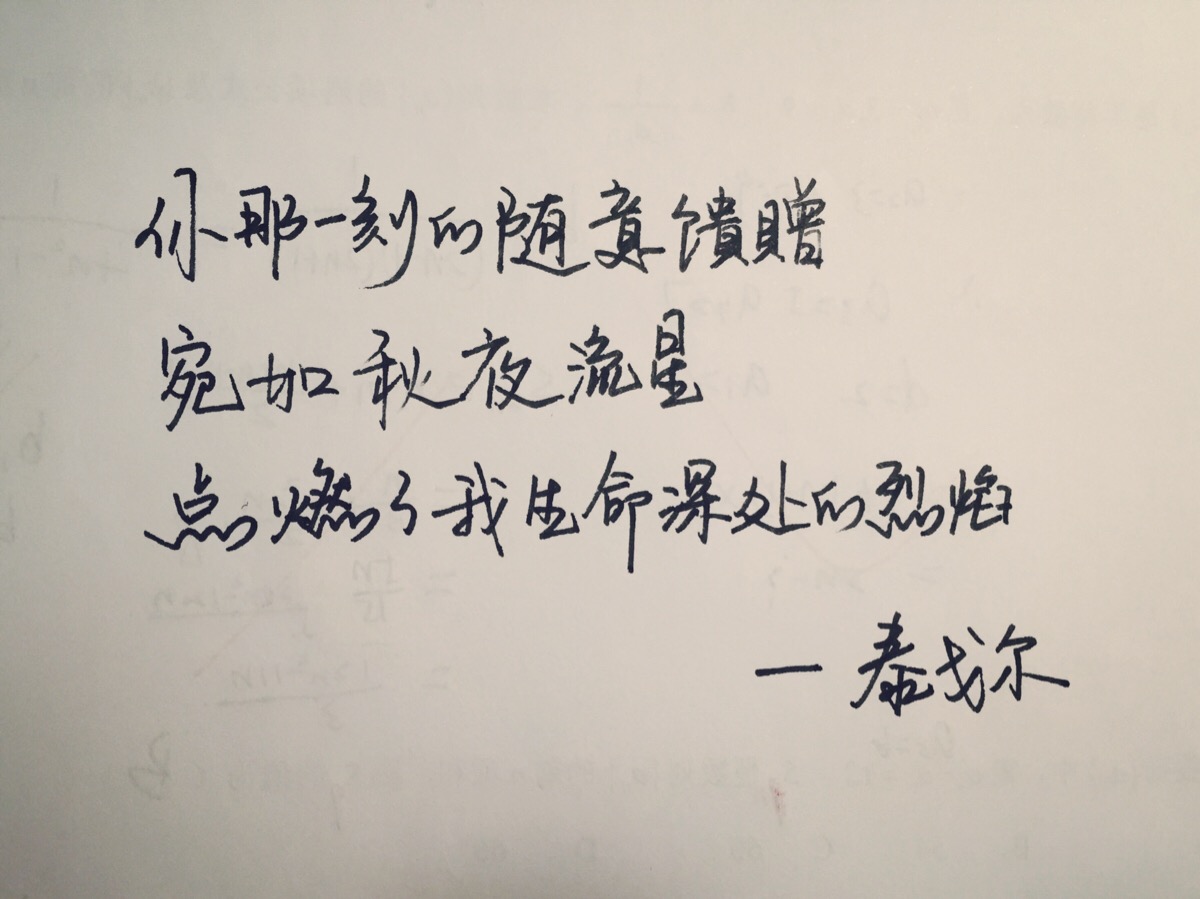 你那一刻的随意馈贈
宛如秋夜流星
点燃了我生命深处的烈焰
— 泰戈尔